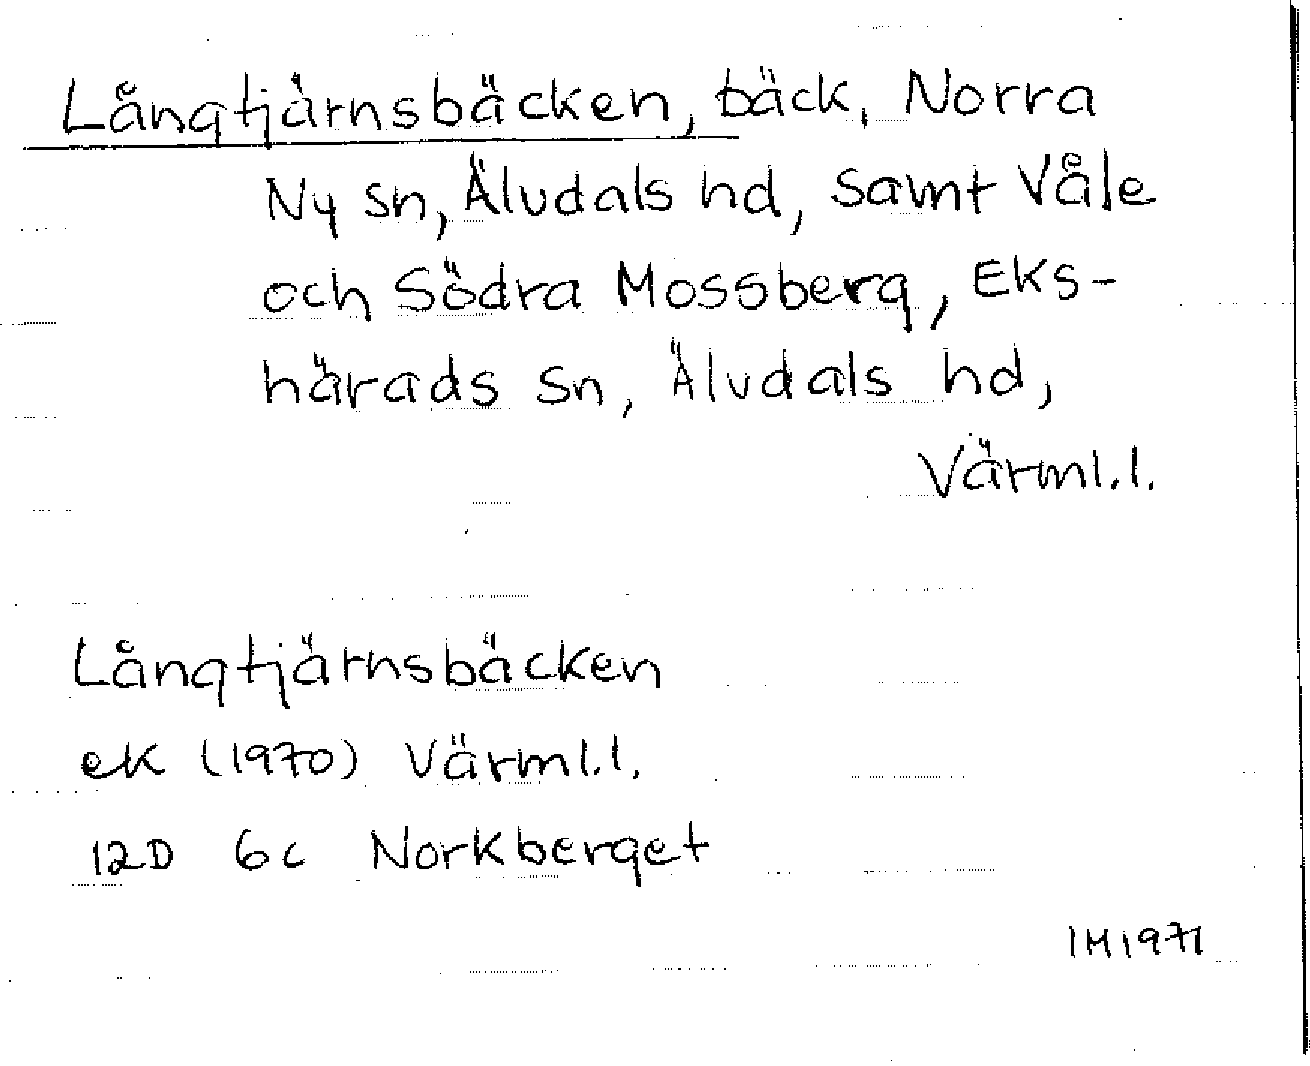 Långtjärnsbäcken, bäck, Norra
Ny sn, Älvdals hd, samt Våle
och Södra Mossberg, Eks-
härads sn, Älvdals hd,
Värml.l.
Långtjärnsbäcken
ek (1970) Värml.l.
12D 6c Norkberget
IH1971